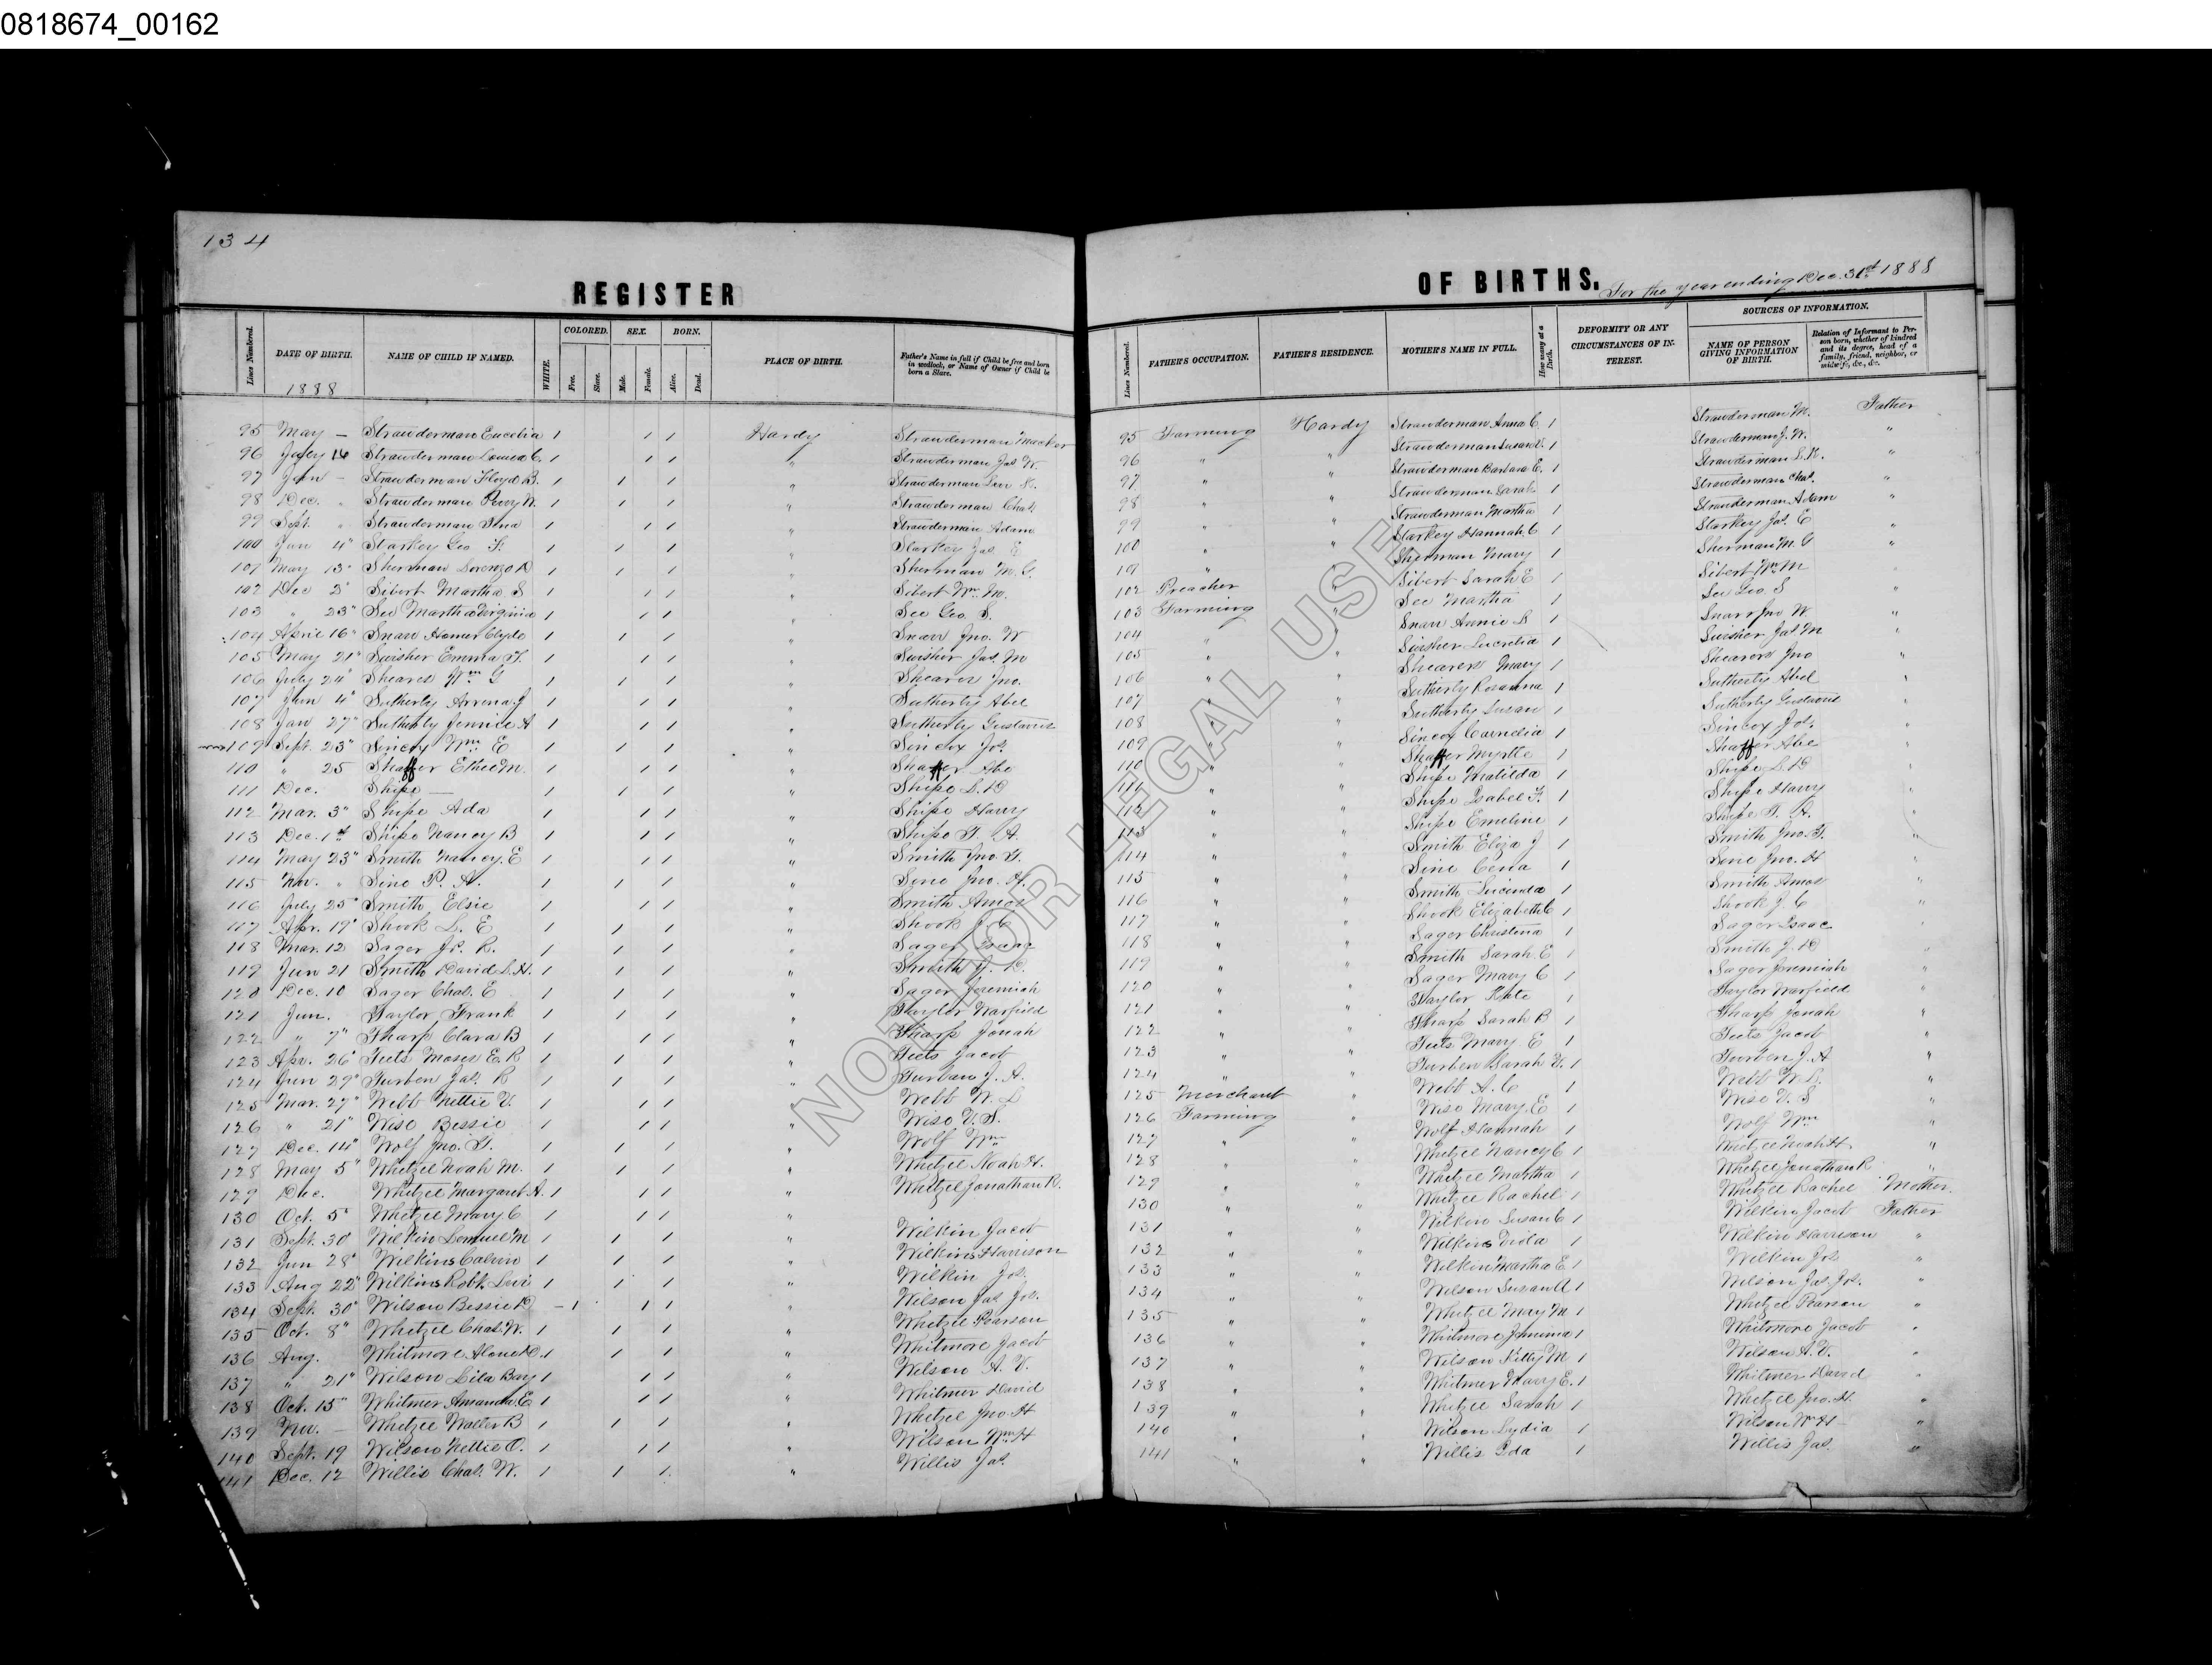 0818674_00162
134
REGISTER
OF BIRTHS. For the year ending Dec. 31st 1888
Lines Numbered. DATE OF BIRTH. NAME OF CHILD IF NAMED. WHITE. COLORED. Free. Slave. SEX. Male. Female. BORN. Alive. Dead. PLACE OF BIRTH. Father's Name in full if Child be free and born in wedlock, or Name of Owner if Child be born a Slave.
Lines Numbered. FATHER'S OCCUPATION. FATHER'S RESIDENCE. MOTHER'S NAME IN FULL. How many at a Birth. DEFORMITY OR ANY CIRCUMSTANCES OF INTEREST. SOURCES OF INFORMATION. NAME OF PERSON GIVING INFORMATION OF BIRTH. Relation of Informant to Person born, whether of kindred and its degree, head of a family, friend, neighbor, or midwife, &c., &c.
1888
95 May — Strawderman 1 1 1 Hardy Strawderman 95 Farming Hardy Strawderman Anna C 1 Strawderman M. Father
96 July 16 Strawderman 1 1 1 " Strawderman Jas W. 96 " " Strawderman 1 Strawderman J. W. "
97 Jun — Strawderman Floyd B. 1 1 1 " Strawderman Levi 97 " " Strawderman Barbara E. 1 Strawderman "
98 Dec. " Strawderman Perry W. 1 1 1 " Strawderman Chas. 98 " " Strawderman Sarah 1 Strawderman Chas. "
99 Sept. " Strawderman 1 1 1 " Strawderman Adam 99 " " Strawderman Martha 1 Strawderman Adam "
100 Jun 4" Starkey Geo F. 1 1 1 " Starkey Jas E 100 " " Starkey Hannah C 1 Starkey Jas. E "
101 May 13" Sherman Lorenzo D 1 1 1 " Sherman M. G. 101 " " Sherman Mary 1 Sherman M. G "
102 Dec 2" Sibert Martha S 1 1 1 " Sibert Wm. M. 102 Preacher " Sibert Sarah E 1 Sibert Wm M "
103 " 23" See Martha Virginia 1 1 1 " See Geo. S. 103 Farming " See Martha 1 See Geo. S "
104 April 16" Snarr Homer Clyde 1 1 1 " Snarr Jno. W 104 " " Snarr Annie 1 Snarr Jno W "
105 May 21" Swisher Emma F. 1 1 1 " Swisher Jas. M 105 " " Swisher Lucretia 1 Swisher Jas M "
106 July 24" Sheares Wm G 1 1 1 " Sheares Jno. 106 " " Sheares Mary 1 Sheares Jno "
107 Jun 4" Sutherly 1 1 1 " Sutherly Abel 107 " " Sutherly Rosanna 1 Sutherly Abel "
108 Jan 27" Sutherly Jennie A 1 1 1 " Sutherly Gustavus 108 " " Sutherly Susan 1 Sutherly "
109 Sept. 23" Sincox Wm. E 1 1 1 " Sincox Jos. 109 " " Sincox Cornelia 1 Sincox Jos. "
110 " 25 Shaffer M. 1 1 1 " Shaffer Abe 110 " " Shaffer Myrtle 1 Shaffer Abe "
111 Dec. Shipe — 1 1 1 " Shipe L. D 111 " " Shipe Matilda 1 Shipe L. D "
112 Mar. 3" Shipe Ada 1 1 1 " Shipe Harry 112 " " Shipe Isabel F. 1 Shipe Harry "
113 Dec. 1st Shipe Nancy B 1 1 1 " Shipe A. 113 " " Shipe Emeline 1 Shipe A. "
114 May 23" Smith Nancy E 1 1 1 " Smith Jno. 114 " " Smith Eliza J 1 Smith Jno. "
115 Nov. " Sine P. A. 1 1 1 " Sine Jno. H. 115 " " Sine Cena 1 Sine Jno. H "
116 July 25" Smith Elsie 1 1 1 " Smith Amos 116 " " Smith Lucinda 1 Smith Amos "
117 Apr. 19" Shook L. E 1 1 1 " Shook J. C 117 " " Shook Elizabeth C 1 Shook J. C "
118 Mar. 12 Sager R. 1 1 1 " Sager Isaac 118 " " Sager Christina 1 Sager Isaac "
119 Jun 21 Smith David L. H. 1 1 1 " Smith J. D. 119 " " Smith Sarah E 1 Smith J. D "
120 Dec. 10 Sager Chas. E 1 1 1 " Sager Jeremiah 120 " " Sager Mary C 1 Sager Jeremiah "
121 Jun. Taylor Frank 1 1 1 " Taylor Warfield 121 " " Taylor Kate 1 Taylor Warfield "
122 " 7" Tharp Clara B 1 1 1 " Tharp Jonah 122 " " Tharp Sarah B 1 Tharp Jonah "
123 Apr. 26" Teets Moses E. R 1 1 1 " Teets Jacob 123 " " Teets Mary E 1 Teets Jacob "
124 Jun 29" Turben Jas. R 1 1 1 " Turban J. A. 124 " " Turben Sarah V. 1 Turben J. A "
125 Mar. 27" Webb Nettie V. 1 1 1 " Webb W. L 125 Merchant " Webb A. C 1 Webb W. L. "
126 " 21" Wise Bessie 1 1 1 " Wise V. S. 126 Farming " Wise Mary E 1 Wise V. S "
127 Dec. 14" Wolf Jno. 1 1 1 " Wolf Wm 127 " " Wolf Hannah 1 Wolf Wm "
128 May 5" Whetzel Noah M. 1 1 1 " Whetzel Noah H. 128 " " Whetzel Nancy C 1 Whetzel Noah H. "
129 Dec. Whetzel Margaret A. 1 1 1 " Whetzel Jonathan R. 129 " " Whetzel Martha 1 Whetzel Jonathan R "
130 Oct. 5" Whetzel Mary C 1 1 1 " 130 " " Whetzel Rachel 1 Whetzel Rachel Mother.
131 Sept. 30" Wilkin Lemuel M 1 1 1 " Wilkin Jacob 131 " " Wilkin Susan C 1 Wilkin Jacob Father
132 Jun 28" Wilkins Calvin 1 1 1 " Wilkins Harrison 132 " " Wilkins Viola 1 Wilkin Harrison "
133 Aug 22" Wilkins Robt. Levi 1 1 1 " Wilkin Jos. 133 " " Wilkin Martha E. 1 Wilkin Jos. "
134 Sept. 30" Wilson Bessie D — 1 1 1 " Wilson Jas. Jos. 134 " " Wilson Susan 1 Wilson Jas. Jos. "
135 Oct. 8" Whetzel Chas. W. 1 1 1 " Whetzel Pearson 135 " " Whetzel May M 1 Whetzel Pearson "
136 Aug. Whitmore 1 1 1 " Whitmore Jacob 136 " " Whitmore Jemima 1 Whitmore Jacob "
137 " 21" Wilson Lila Bay 1 1 1 " Wilson A. V. 137 " " Wilson Kitty M 1 Wilson A. V. "
138 Oct. 15" Whitmer Amanda E 1 1 1 " Whitmer David 138 " " Whitmer Mary E. 1 Whitmer David "
139 Nov. — Whetzel Walter B 1 1 1 " Whetzel Jno. H 139 " " Whetzel Sarah 1 Whetzel Jno. H. "
140 Sept. 19 Wilson Nettie O. 1 1 1 " Wilson Wm H 140 " " Wilson Lydia 1 Wilson Wm H "
141 Dec. 12 Willis Chas. W. 1 1 1 " Willis Jas. 141 " " Willis Ida 1 Willis Jas. "
NOT FOR LEGAL USE